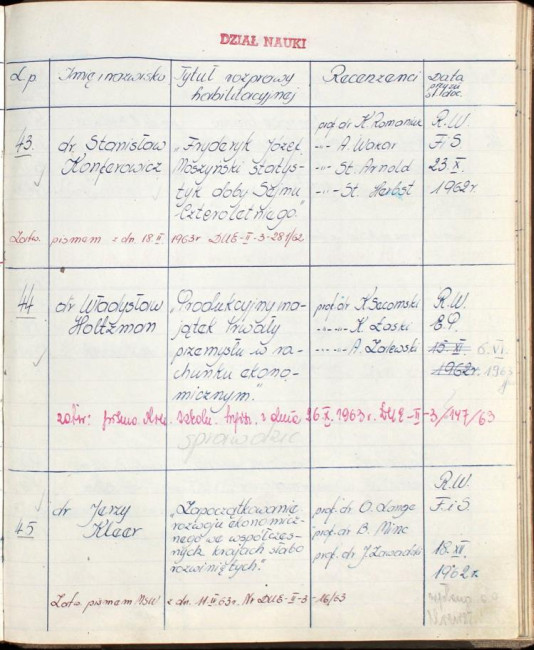 DZIAŁ NAUKI
L.p Imię i nazwisko Tytuł rozprawy habilitacyjnej Recenzenci Data
43. dr Stanisław Konferowicz
"Fryderyk Józef
Moszyński statys-
tyk doby Sejmu
Czteroletniego."
prof. dr K Romaniuk
-"- A. Wakar
-"- St. Arnold
-"- St. Herbst
R.W.
F i S
23. X.
1962 r.
Zatw. pismem z dn. 18. II 1963 r DUE-II-3-281/62
44 dr Władysław Holtzman
"Produkcyjny ma-
jątek trwały
przemysłu w ra-
chunku ekono-
micznym."
prof. dr K Secomski
-"- -"- K Łaski
-"- -"- A. Zalewski
R.W.
E.P.
15. XI. 6. VI.
1962 r. 1963
zatw. pismo Min. szkoln. wyższ. z dnia 26 IX. 1963 r. DUE-II-3/147/63
sprawdzić
45 dr Jerzy Kleer
"Zapoczątkowanie
rozwoju ekonomicz-
nego we współczes-
nych krajach słabo
rozwiniętych."
prof. dr O. Lange
prof. dr B. Minc
prof. dr J. Zawadzki
R.W.
F. i S.
18. XII.
1962 r.
Zatw. pismem z dn. 11. II 63 r. Nr DUE-II-3-16/63